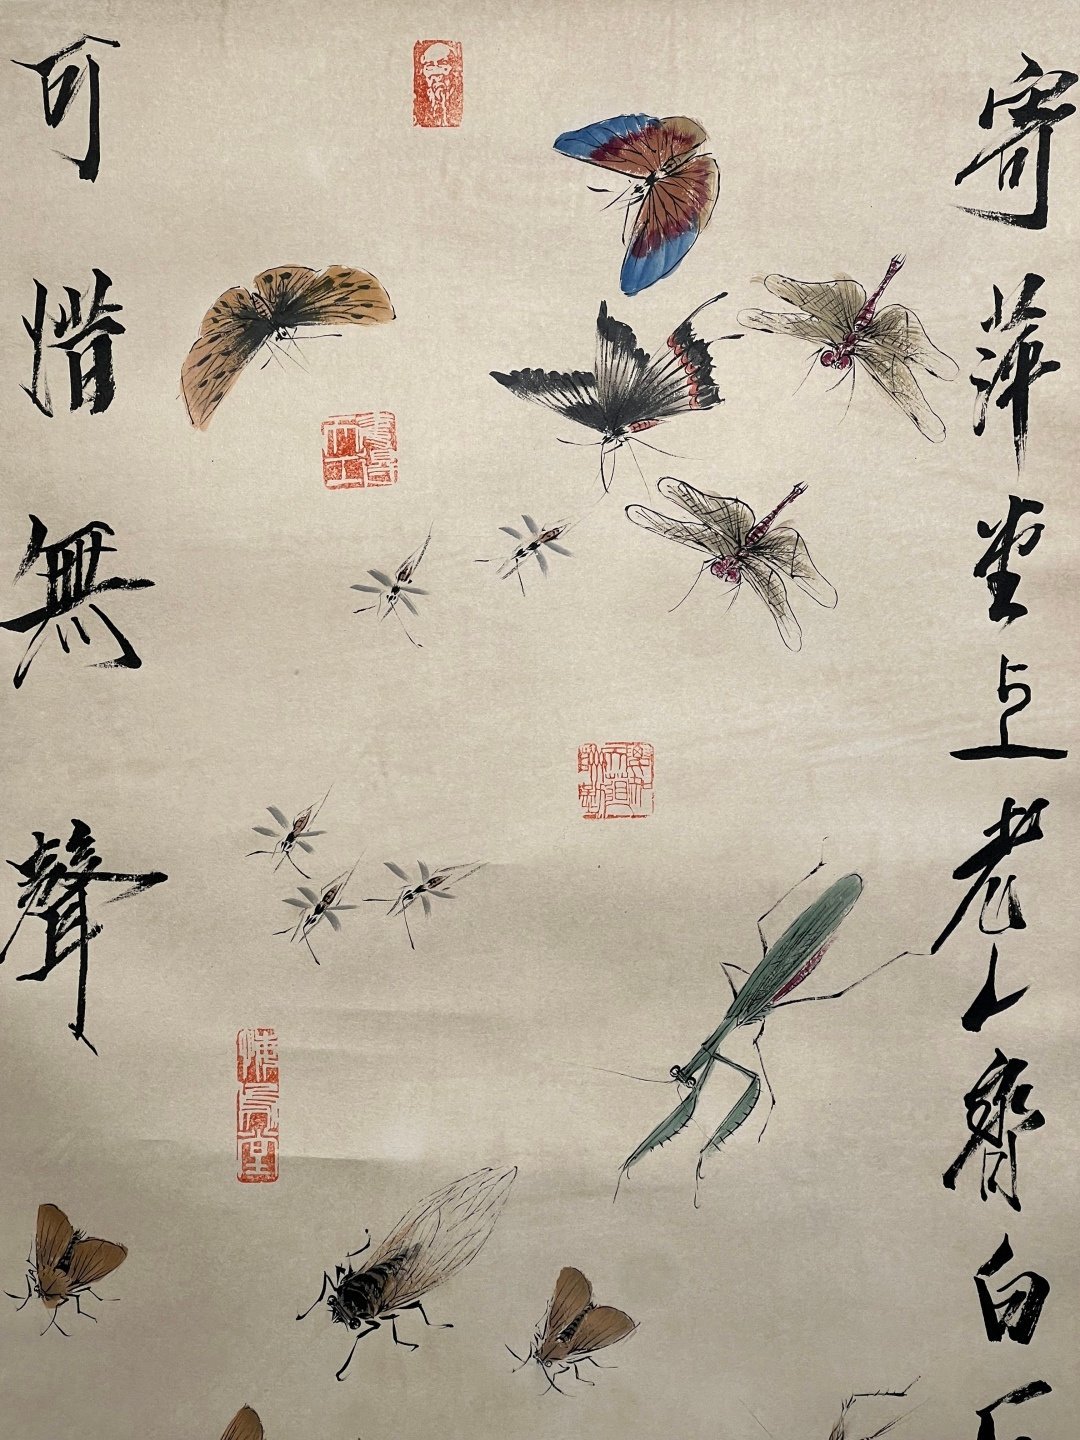 寄萍堂上老人齊白
悔烏堂
可惜無聲